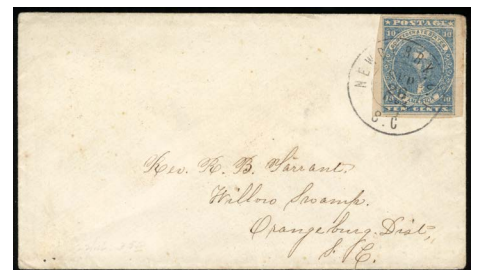 POSTAGE
TEN CENTS
NEWBERRY
S.C
Rev. R. B. Tarrant.
Willow Swamp.
Orangeburg. Dist,
S. C.